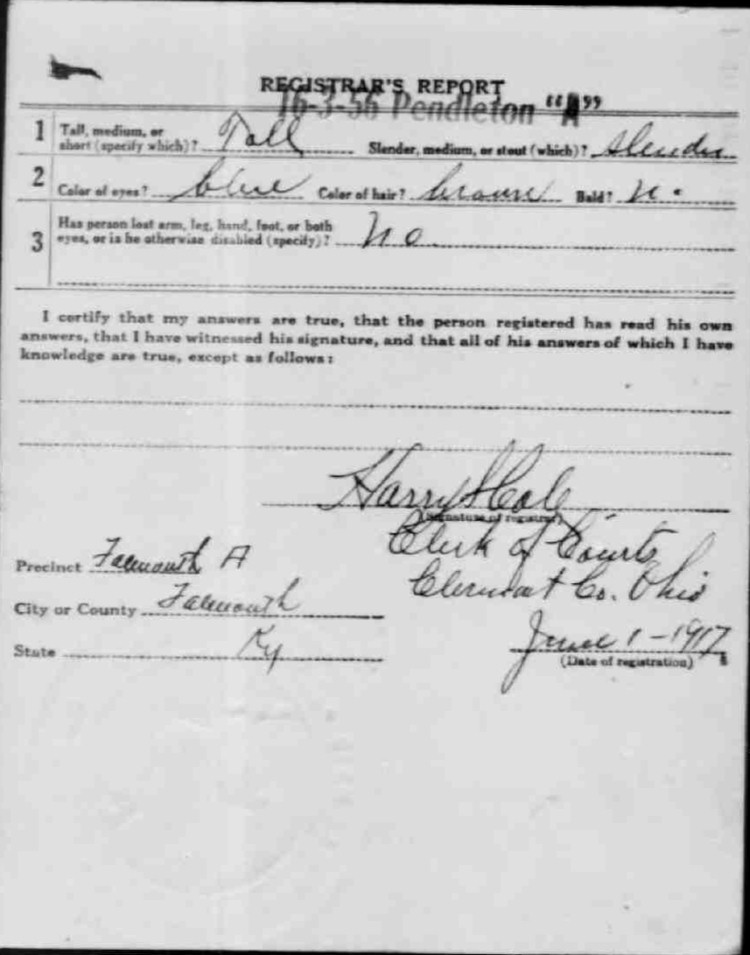 REGISTRAR'S REPORT
16-3-56 Pendleton "A"
1 Tall, medium, or short (specify which)? Tall Slender, medium, or stout (which)? Slender
2 Color of eyes? blue Color of hair? brown Bald? No
3 Has person lost arm, leg, hand, foot, or both
eyes, or is he otherwise disabled (specify)? No
I certify that my answers are true, that the person registered has read his own
answers, that I have witnessed his signature, and that all of his answers of which I have
knowledge are true, except as follows:
Harry S Cole
(Signature of registrar)
Clerk of Courts
Precinct Falmouth A
Clermont Co. Ohio
City or County Falmouth
State Ky
June 1-1917
(Date of registration)